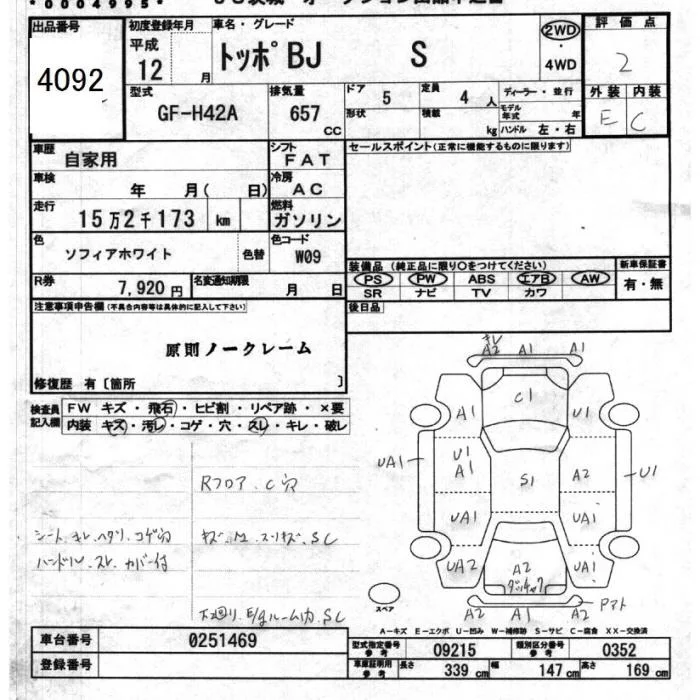 ・0004995・
出品番号
4092
初度登録年月
平成
12 月
車名・グレード
トッポBJ S
2WD
・
4WD
評価点
2
外装 内装
E C
型式
GF-H42A
排気量
657
CC
ドア
5
定員
4 人
形状
積載
kg
ディーラー・並行
モデル年式 年
ハンドル 左・右
車歴
自家用
シフト
FAT
車検
年 月( 日)
冷房
AC
走行
15万2千173 km
燃料
ガソリン
色
ソフィアホワイト
色替
色コード
W09
R券
7,920 円
名変通知期限
月 日
セールスポイント(正常に機能するものに限ります)
装備品(純正品に限り○をつけてください)
PS PW ABS エアB AW
SR ナビ TV カワ
新車保証書
有・無
後日品
注意事項申告欄(不具合内容等は具体的に記入して下さい)
原則ノークレーム
修復歴 有〔箇所 〕
検査員記入欄
FW キズ・飛石・ヒビ割・リペア跡・×要
内装・キズ・汚レ・コゲ・穴・スレ・キレ・破レ
Rフロア.C穴
シート.キレ.ヘタリ.コゲ穴
ハンドル.スレ.カバー付
下廻り.E/gルーム内.SC
キレ
A2 A1 A1
C1
A1
U1
UA1
U1
A1
S1
A2
U1
UA1
UA1
UA2
A2
UA1
A2 A1 A2
スペア
A-キズ E-エクボ U-凹み W-補修跡 S-サビ C-腐食 XX-交換済
車台番号
0251469
登録番号
型式指定番号
参考
09215
類別区分番号
参考
0352
車庫証明用
参考
長さ 339 cm
幅 147 cm
高さ 169 cm